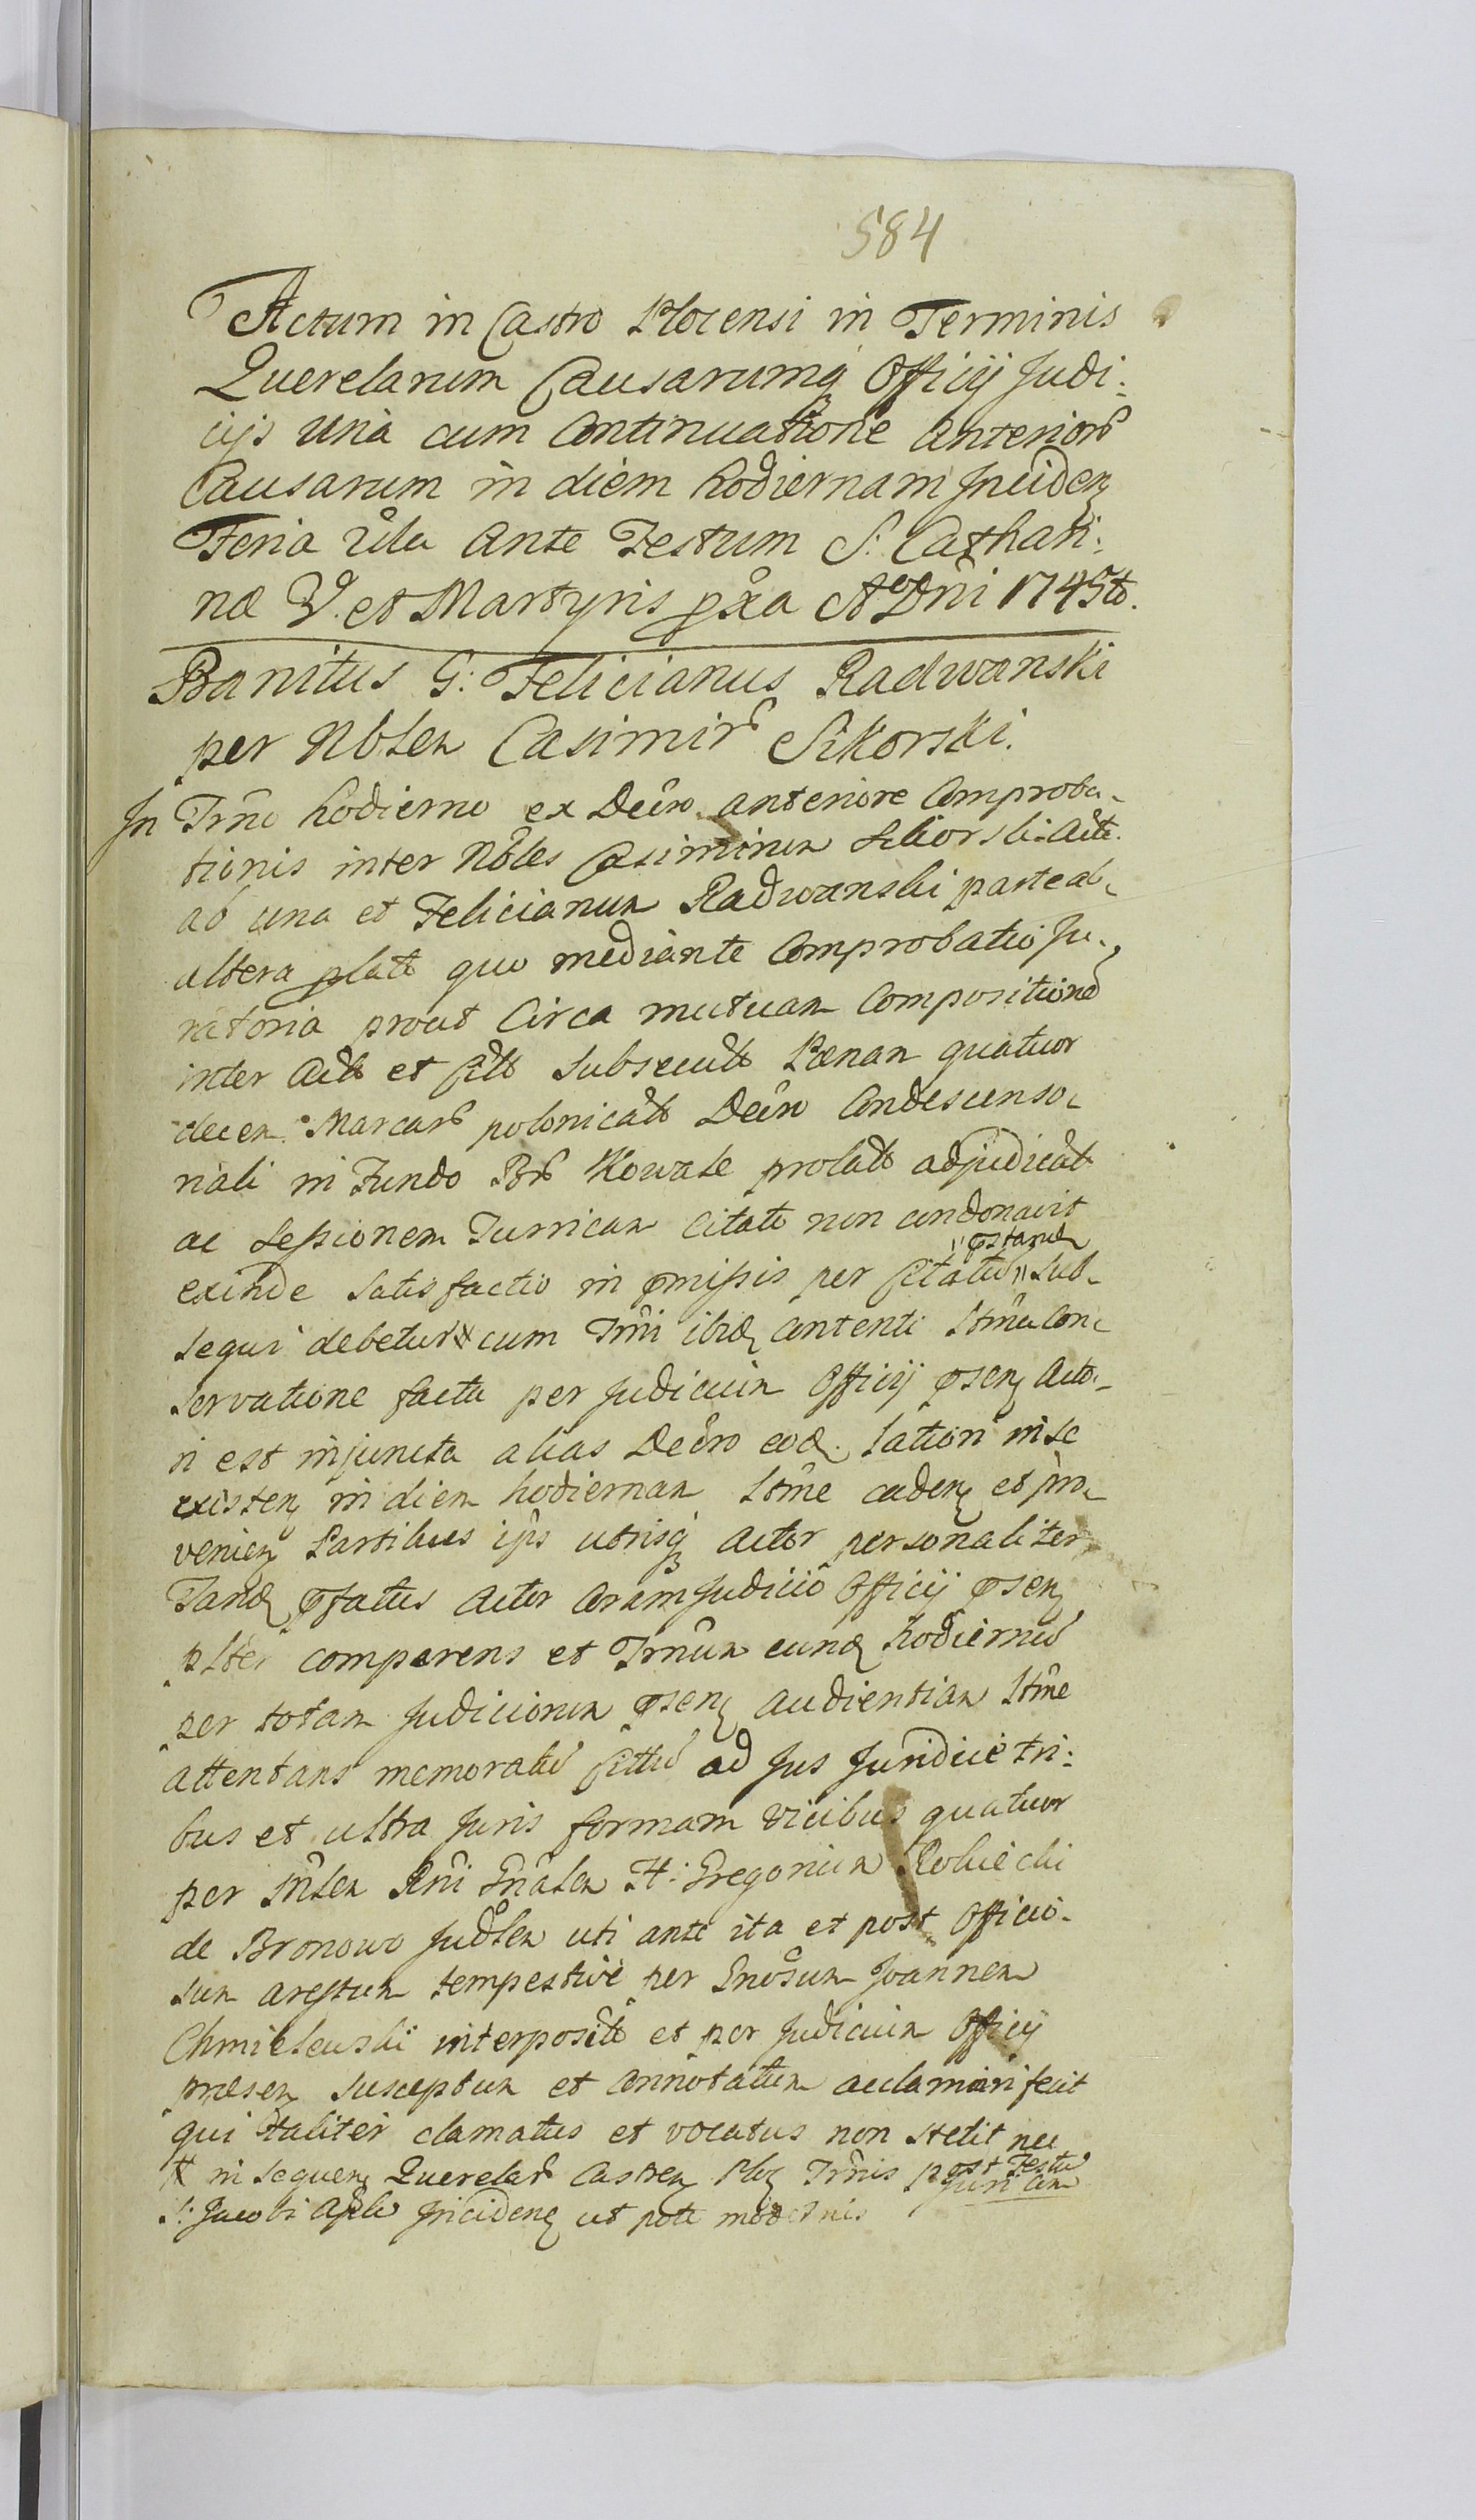 584
Actum in Castro Plocensi in Terminis
Querelarum Causarumq Officij Judi:
cijs una cum Continuatione anterior
Causarum in diem hodiernam Inciden
Feria 2da Ante Festum S. Cathari:
næ V. et Martyris pxa Ao Dni 1745to.
Banitus G: Felicianus Radwanski
per Nblem Casimir Sikorski.
In Trno hodierno ex Decro anteriore Comproba-
tionis inter Nbles Casimirum Sikorski Acto.
ab una et Felicianum Radwanski parte ab
altera plato quo mediante Comprobatio Ju-
ratoria prout Circa mutuam Compositione
inter Acto et Citto subsecuto Pænam quatuor
decem Marcar polonical Decro Condescenso-
riali in Fundo Br Kowale prolato adjudicat
ac Sessionem Turricam Citato non condonavit
pstand
exinde Satisfactio in pmissis per Citatu sub-
sequi debetur cum Trni ibid contenti Stma con-
servatione facta per Judicium Officij psen Acto-
ri est injuncta alias Decro eod. latiori in se
existen in diem hodiernam Stme caden et pro-
venien Partibus ijs utrisq Actor personaliter
Tand pfatus Actor Coram Judicio Officij psen
plter comparens et Trnum eund hodiernu
per totam Judiciorum psen audientiam Stme
attentans memoratu Cittu ad Jus Juridice tri:
bus et ultra Juris formam vicibus quatuor
per Mlem Rni Gnalem H: Gregorium
de Bronowo Judlem uti ante ita et post Officio-
sum arestum tempestive per Gnosum Joannem
Chmielewski interposito et per Judicium Officij
præsen susceptum et annotatum acclamari fecit
qui taliter clamatus et vocatus non stetit nec
in sequen Querelar Castren Ploc Trnis post Festu
S: Jacobi Apli Inciden ut pote modernis